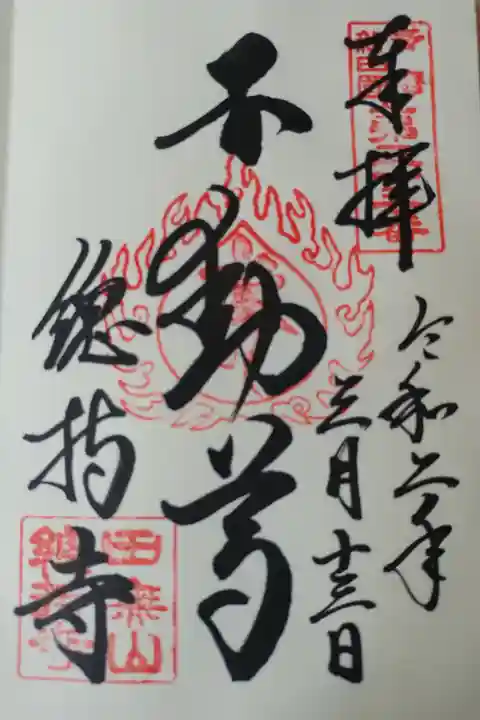 奉拝
令和二年
三月十三日
不動尊
總持寺
田無山
總持寺